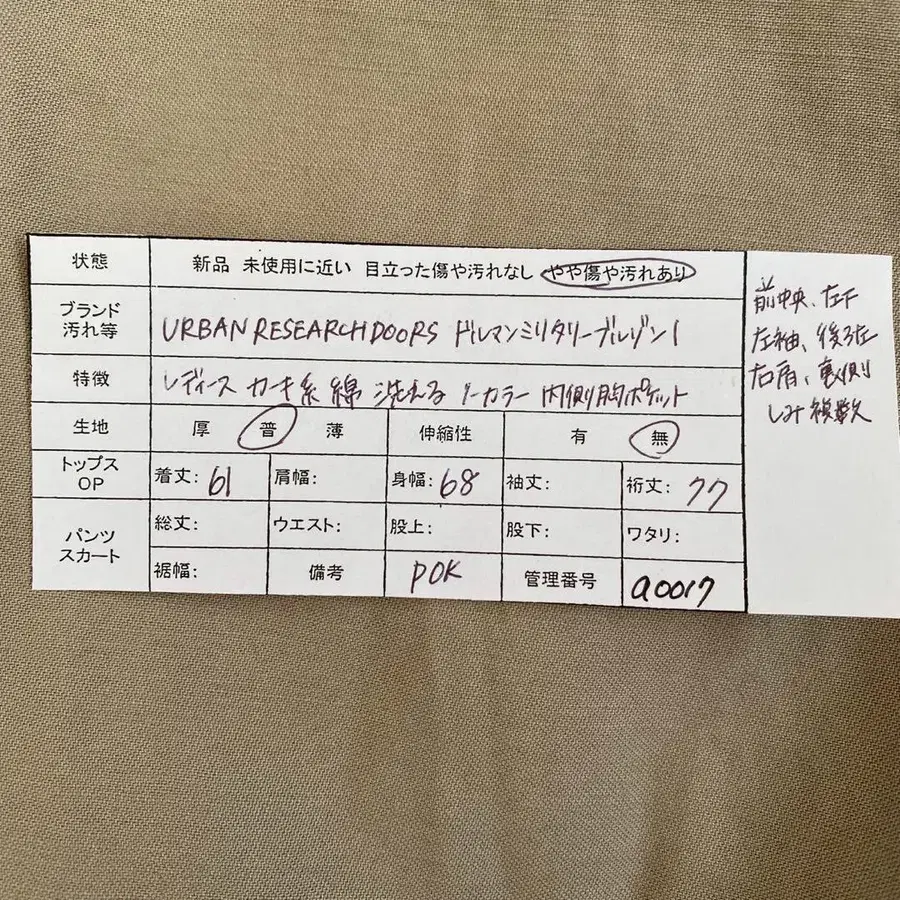 状態 新品 未使用に近い 目立った傷や汚れなし やや傷や汚れあり
ブランド
汚れ等
URBAN RESEARCH DOORS ドルマンミリタリーブルゾン1
特徴 レディース カーキ系 綿 洗える ノーカラー 内側胸ポケット
生地 厚 普 薄 伸縮性 有 無
トップス
OP
着丈: 61 肩幅: 身幅: 68 袖丈: 裄丈: 77
パンツ
スカート
総丈: ウエスト: 股上: 股下: ワタリ:
裾幅: 備考 POK 管理番号 a0017
前中央、左下
左袖、後ろ左
右肩、裏側
しみ複数